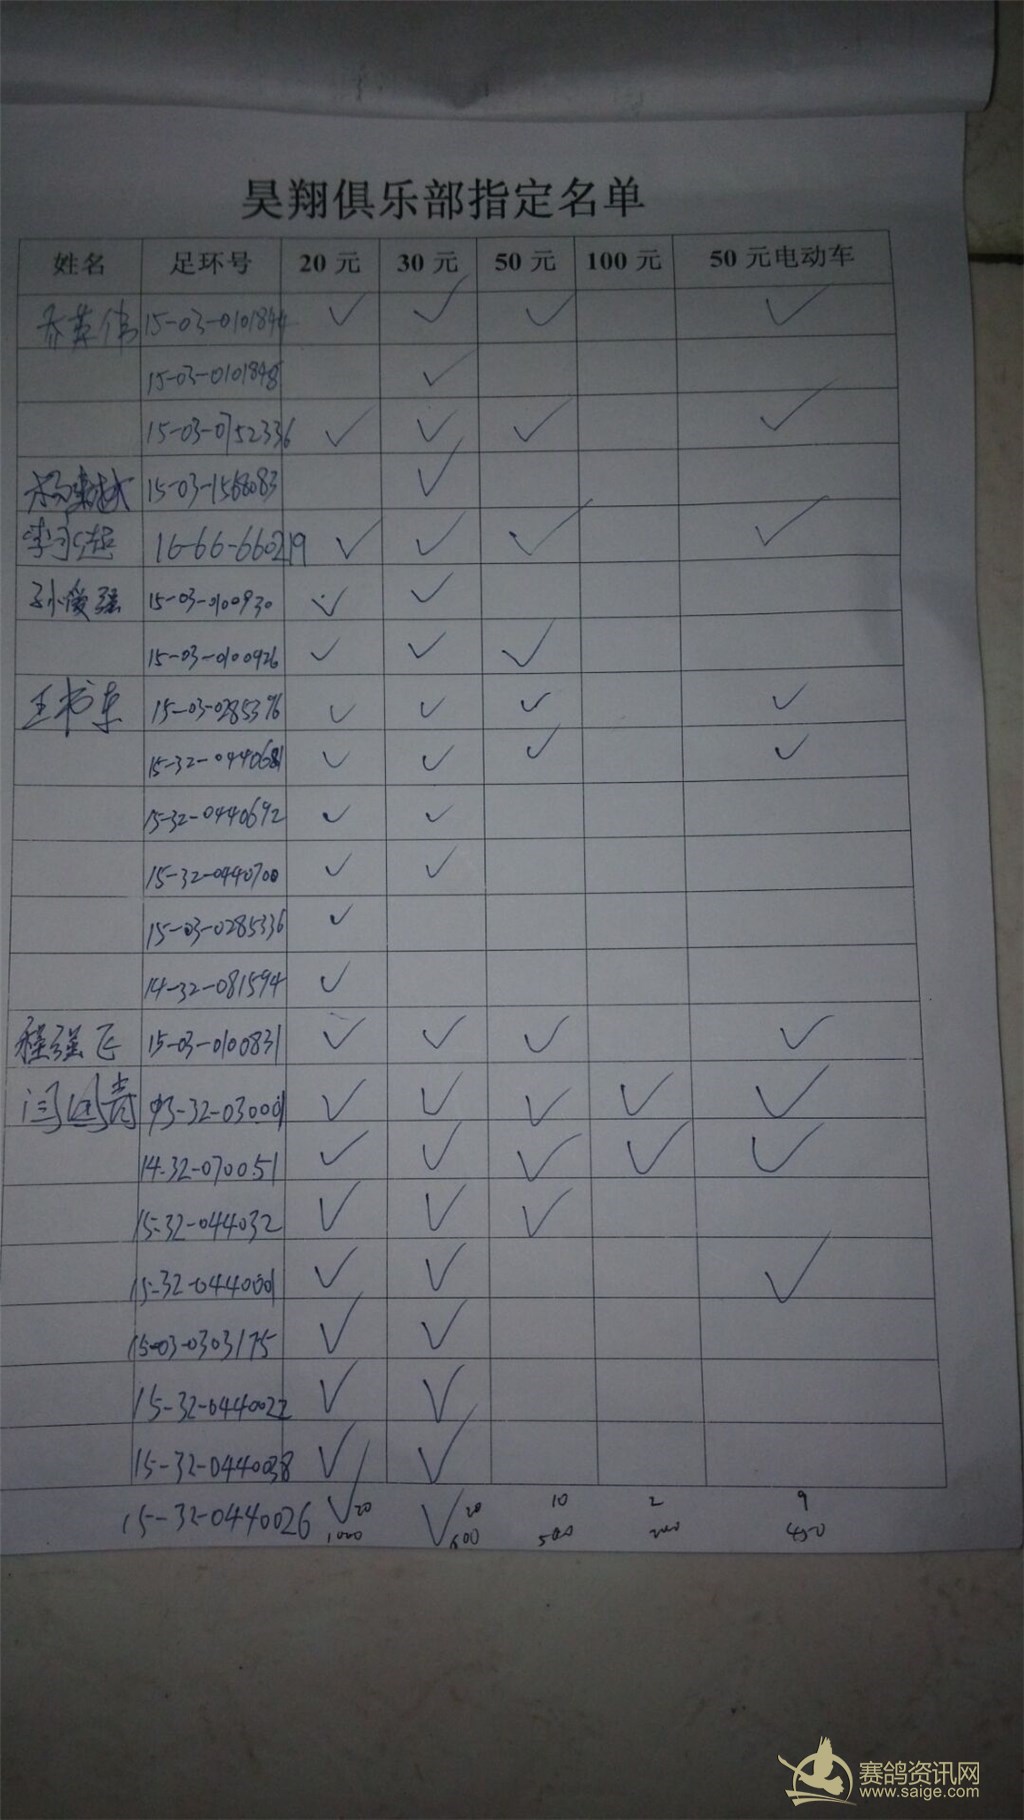 昊翔俱乐部指定名单
姓名 足环号 20 元 30 元 50 元 100 元 50 元电动车
乔英伟 15-03-0101844 ✓ ✓ ✓ ✓
15-03-0101848 ✓
15-03-0152336 ✓ ✓ ✓ ✓
15-03-1568083 ✓
李永超 16-66-660219 ✓ ✓ ✓ ✓
孙爱强 15-03-0100930 ✓ ✓
15-03-0100926 ✓ ✓ ✓
王书东 15-03-0285396 ✓ ✓ ✓ ✓
15-32-0440681 ✓ ✓ ✓ ✓
15-32-0440692 ✓ ✓
15-32-0440700 ✓ ✓
15-03-0285336 ✓
14-32-081594 ✓
程强飞 15-03-0100831 ✓ ✓ ✓ ✓
闫国青 93-32-030001 ✓ ✓ ✓ ✓ ✓
14-32-070051 ✓ ✓ ✓ ✓ ✓
15-32-044032 ✓ ✓ ✓
15-32-044001 ✓ ✓ ✓
15-03-0303175 ✓ ✓
15-32-0440022 ✓ ✓
15-32-0440038 ✓ ✓
15-32-0440026 ✓ 20 ✓ 20 10 2 9
600 500 200 450
赛鸽资讯网
www.saige.com